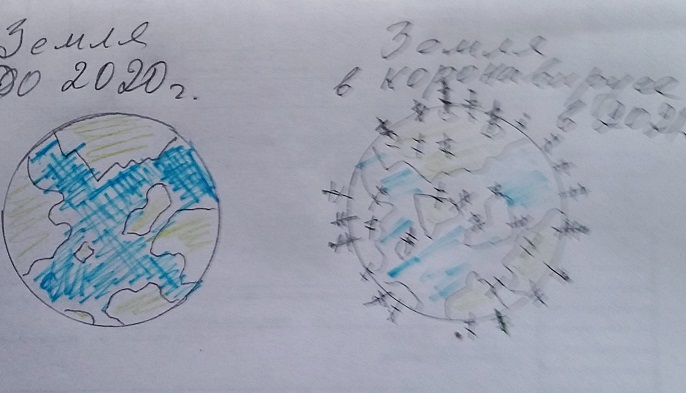 Земля
до 2020 г.
Земля
в коронавирусе
в 2021